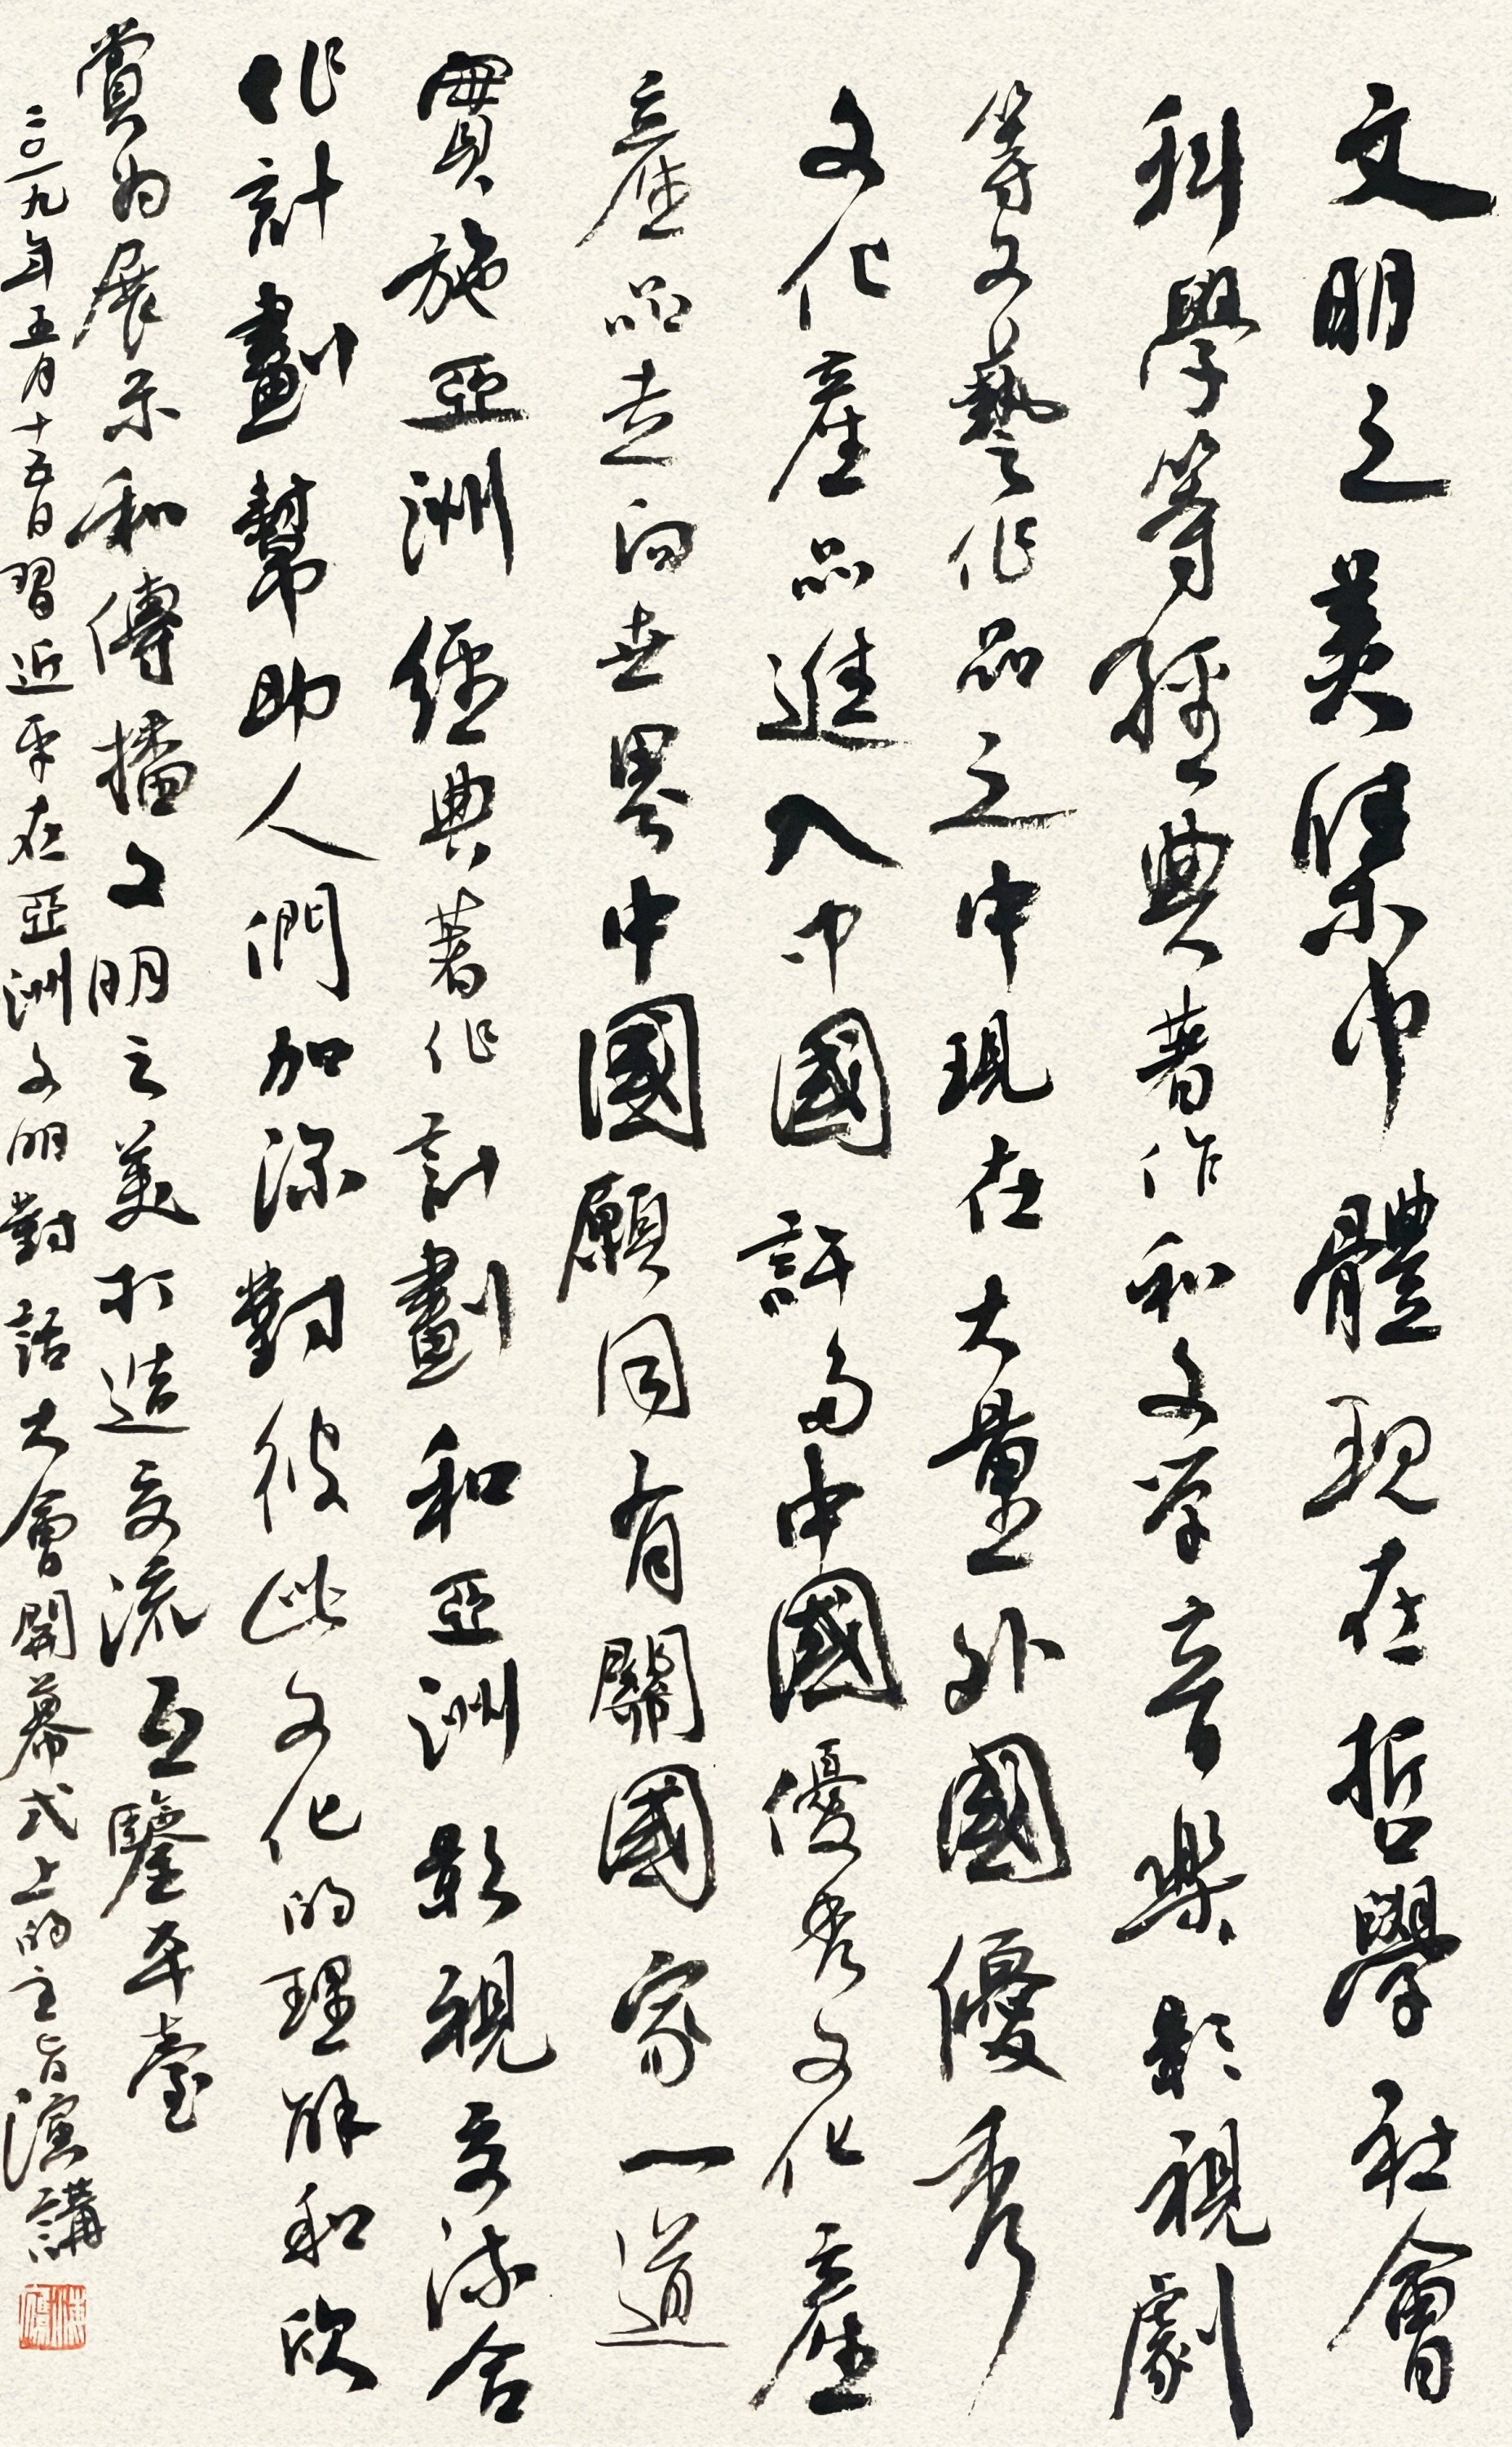 文明之美集中體現在哲學社會
科學等經典著作和文学音樂影視劇
等文藝作品之中現在大量外國優秀
文化產品進入中國許多中國優秀文化產
產品走向世界中國願同有關國家一道
實施亞洲經典著作計劃和亞洲影視交流合
作計劃幫助人們加深對彼此文化的理解和欣
賞為展示和傳播文明之美打造交流互鑒平臺
二〇一九年五月十五日習近平在亞洲文明對話大會開幕式上的主旨演講